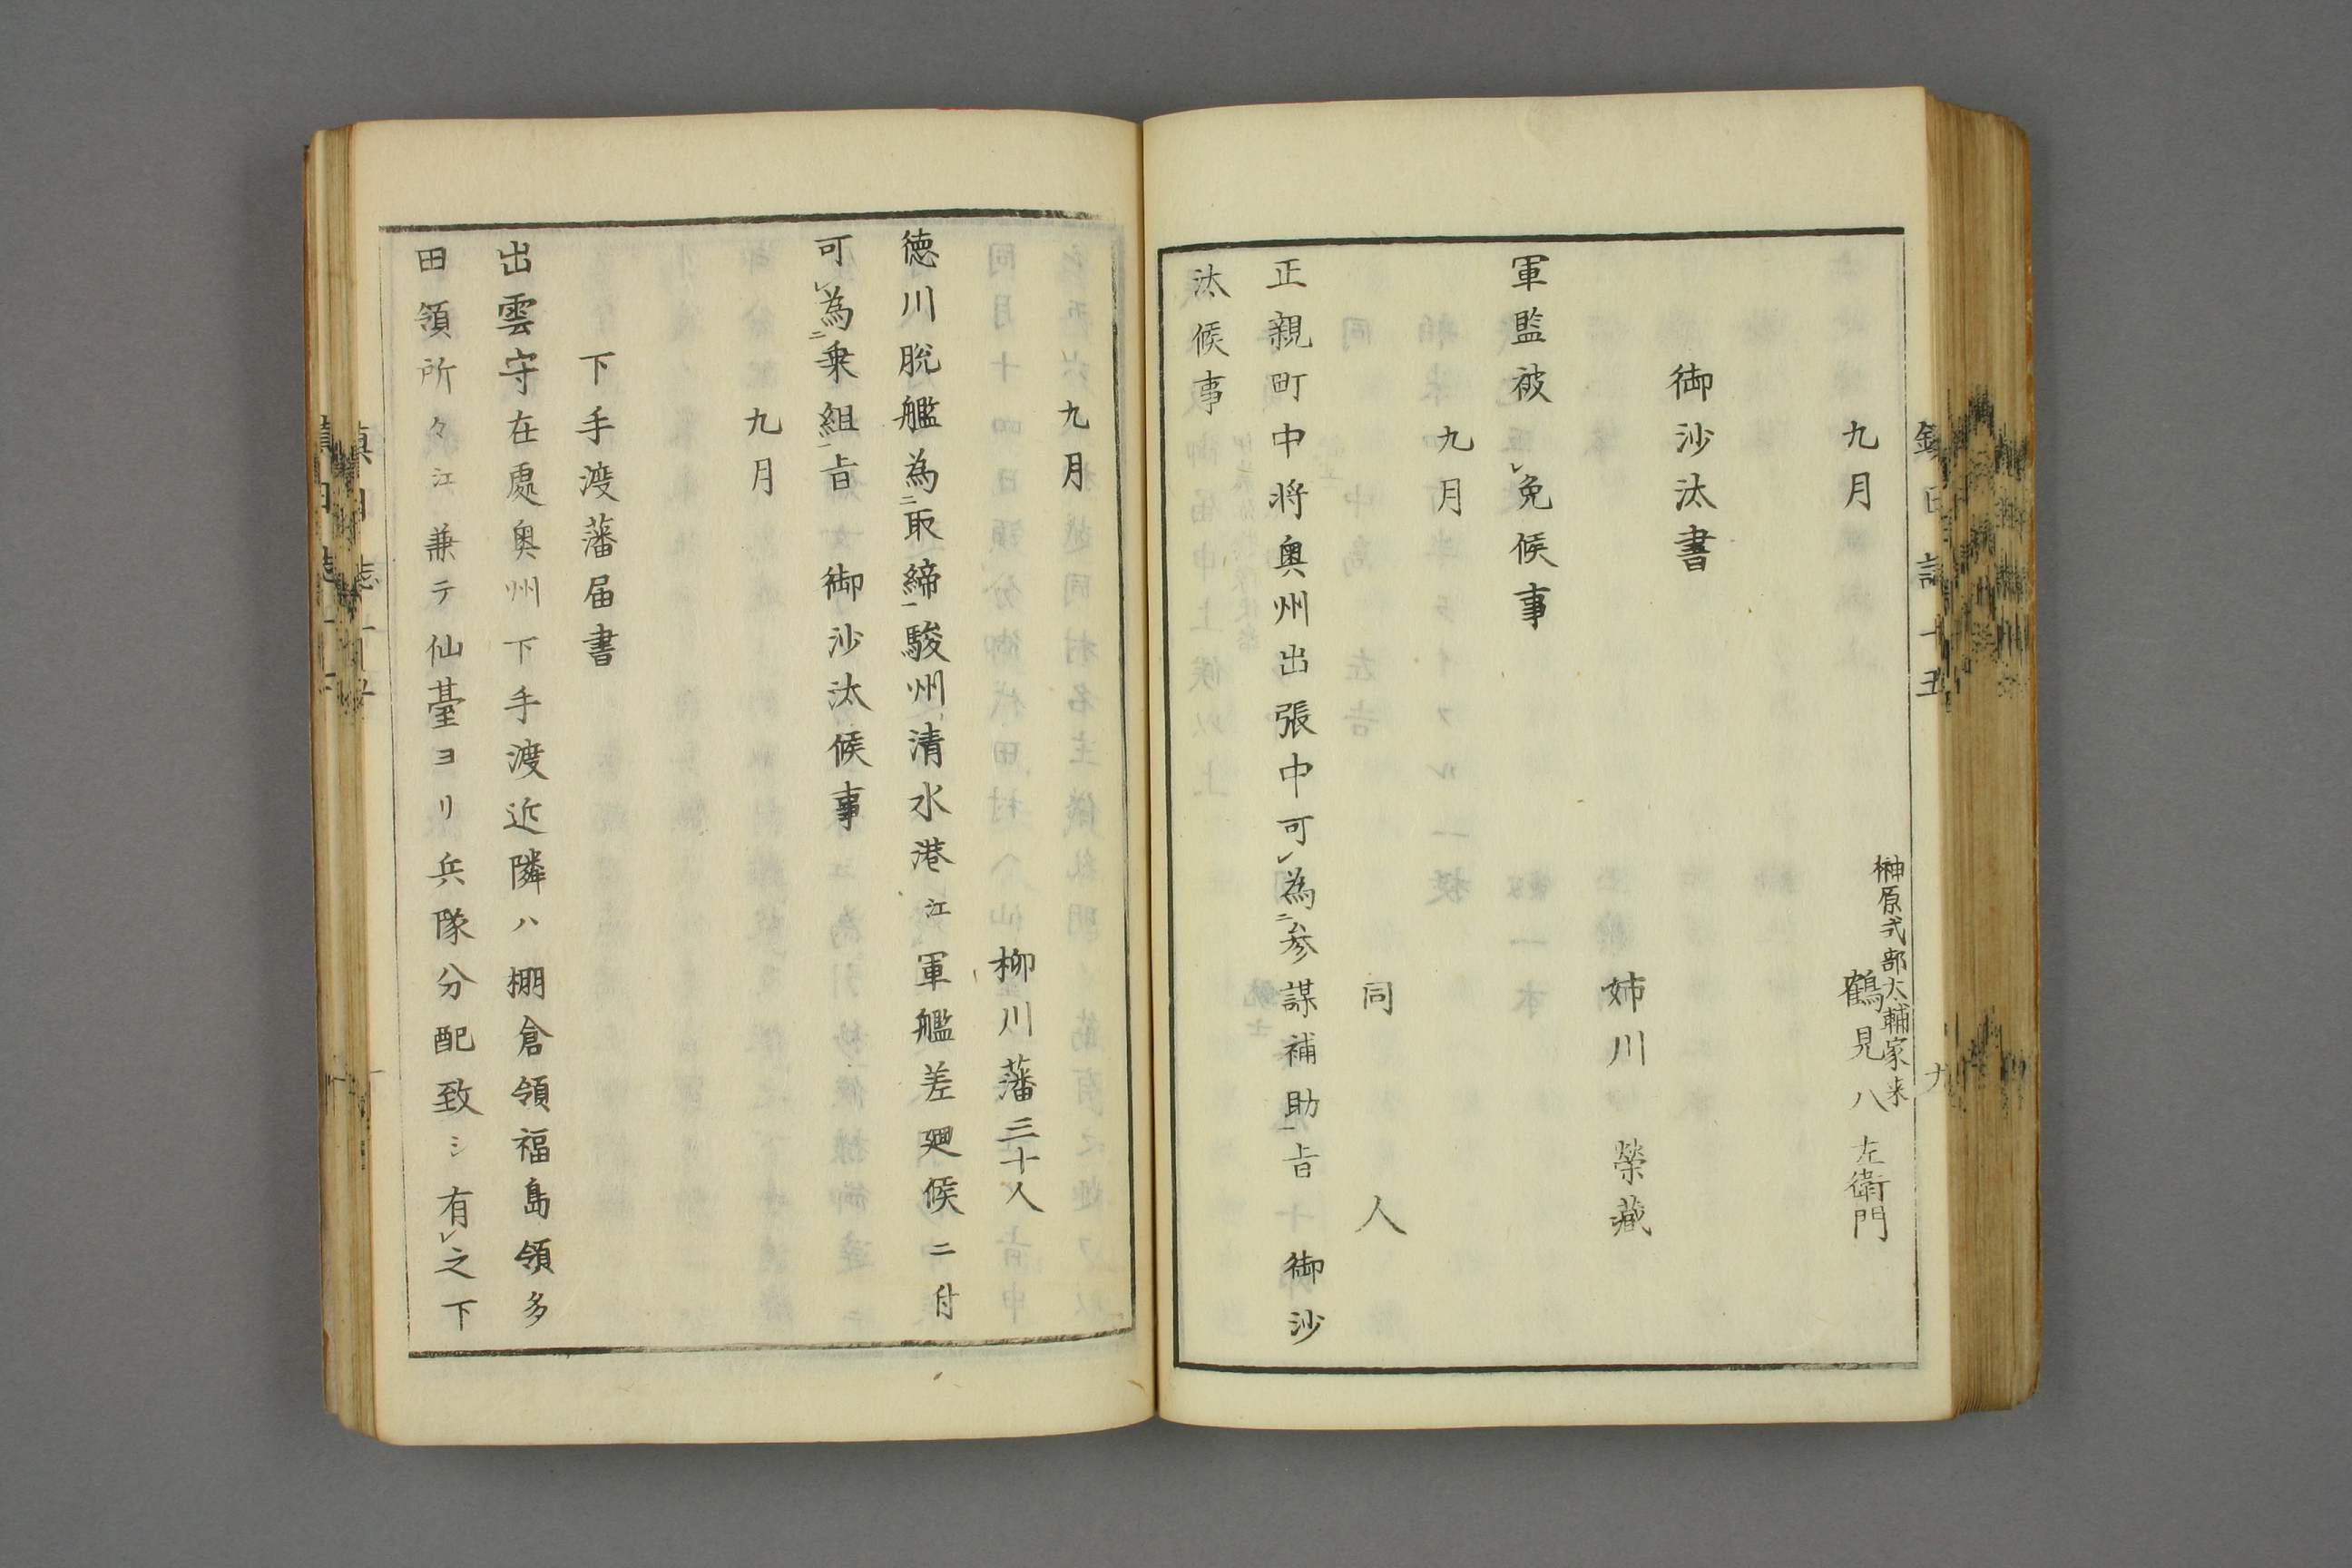 九月
榊原式部大輔家来
鶴見八左衛門
御沙汰書
姉川榮藏
軍監被㆑免候事
九月
同人
正親町中将奥州出張中可㆑為㆓参謀補助㆒旨御沙
汰候事
九月
柳川藩三十人
徳川脱艦為㆓取締㆒駿州清水港江軍艦差廻候ニ付
可㆑為㆓乗組㆒旨御沙汰候事
九月
下手渡藩届書
出雲守在處奥州下手渡近隣ハ棚倉領福島領多
田領所々江兼テ仙臺ヨリ兵隊分配致シ有㆑之下